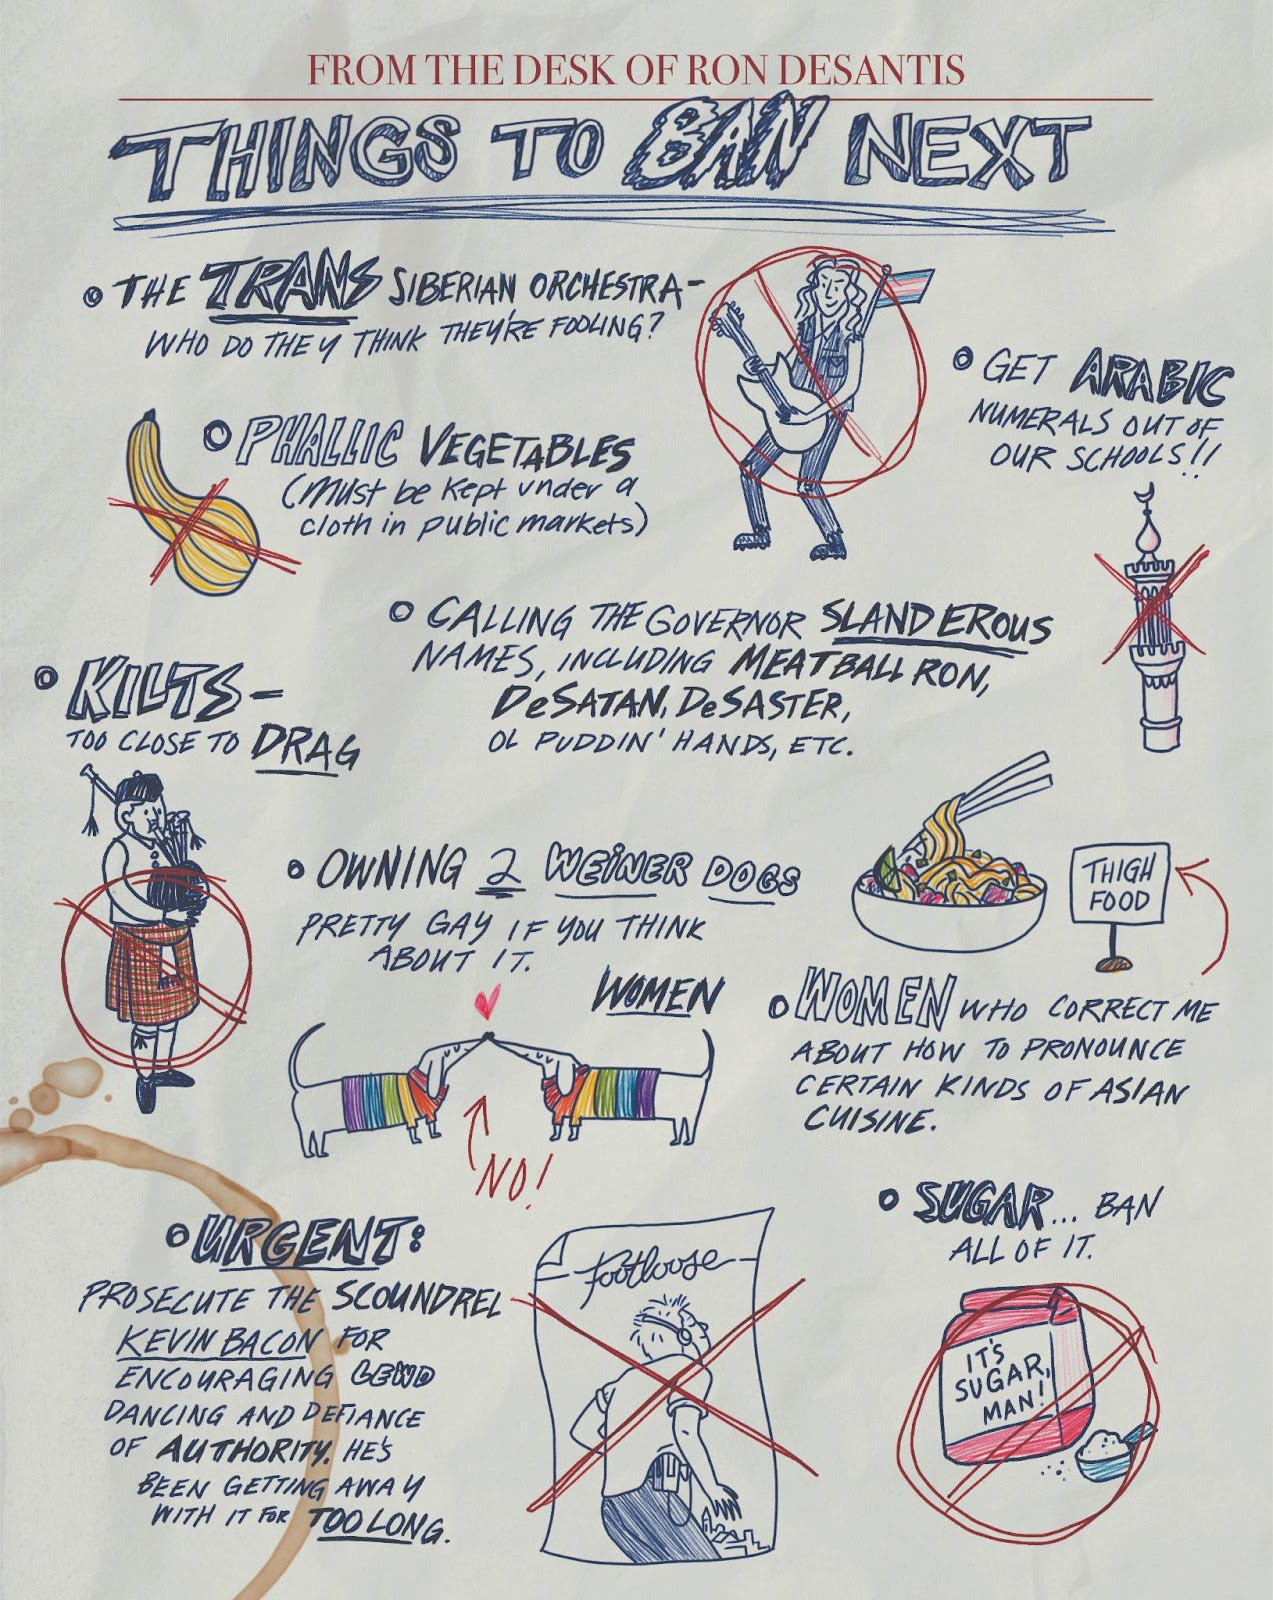 FROM THE DESK OF RON DESANTIS
THINGS TO BAN NEXT
THE TRANS SIBERIAN ORCHESTRA-
WHO DO THEY THINK THEY'RE FOOLING?
GET ARABIC
NUMERALS OUT OF
OUR SCHOOLS!!
PHALLIC VEGETABLES
(Must be kept under a
cloth in public markets)
CALLING THE GOVERNOR SLANDEROUS
NAMES, INCLUDING MEATBALL RON,
DeSATAN, DeSASTER,
OL PUDDIN' HANDS, ETC.
KILTS-
TOO CLOSE TO DRAG
OWNING 2 WEINER DOGS
PRETTY GAY IF YOU THINK
ABOUT IT.
NO!
THIGH
FOOD
WOMEN
WOMEN WHO CORRECT ME
ABOUT HOW TO PRONOUNCE
CERTAIN KINDS OF ASIAN
CUISINE.
URGENT:
PROSECUTE THE SCOUNDREL
KEVIN BACON FOR
ENCOURAGING LEWD
DANCING AND DEFIANCE
OF AUTHORITY. HE'S
BEEN GETTING AWAY
WITH IT FOR TOO LONG.
Footloose
SUGAR... BAN
ALL OF IT.
IT'S
SUGAR,
MAN!